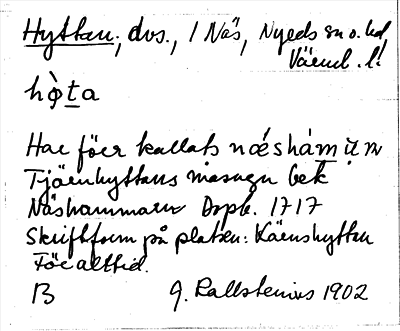 Hyttan, dvs., 1 Näs, Nyeds sn o. hd,
Värml. l.
hø̀ta
Har förr kallats næ´shámɯ̀n
Tjärnhyttans masugn bek
Näshammaren Dopb. 1717
Skriftform på platsen: Kärnhyttan
För alltid.
B G. Kallstenius 1902